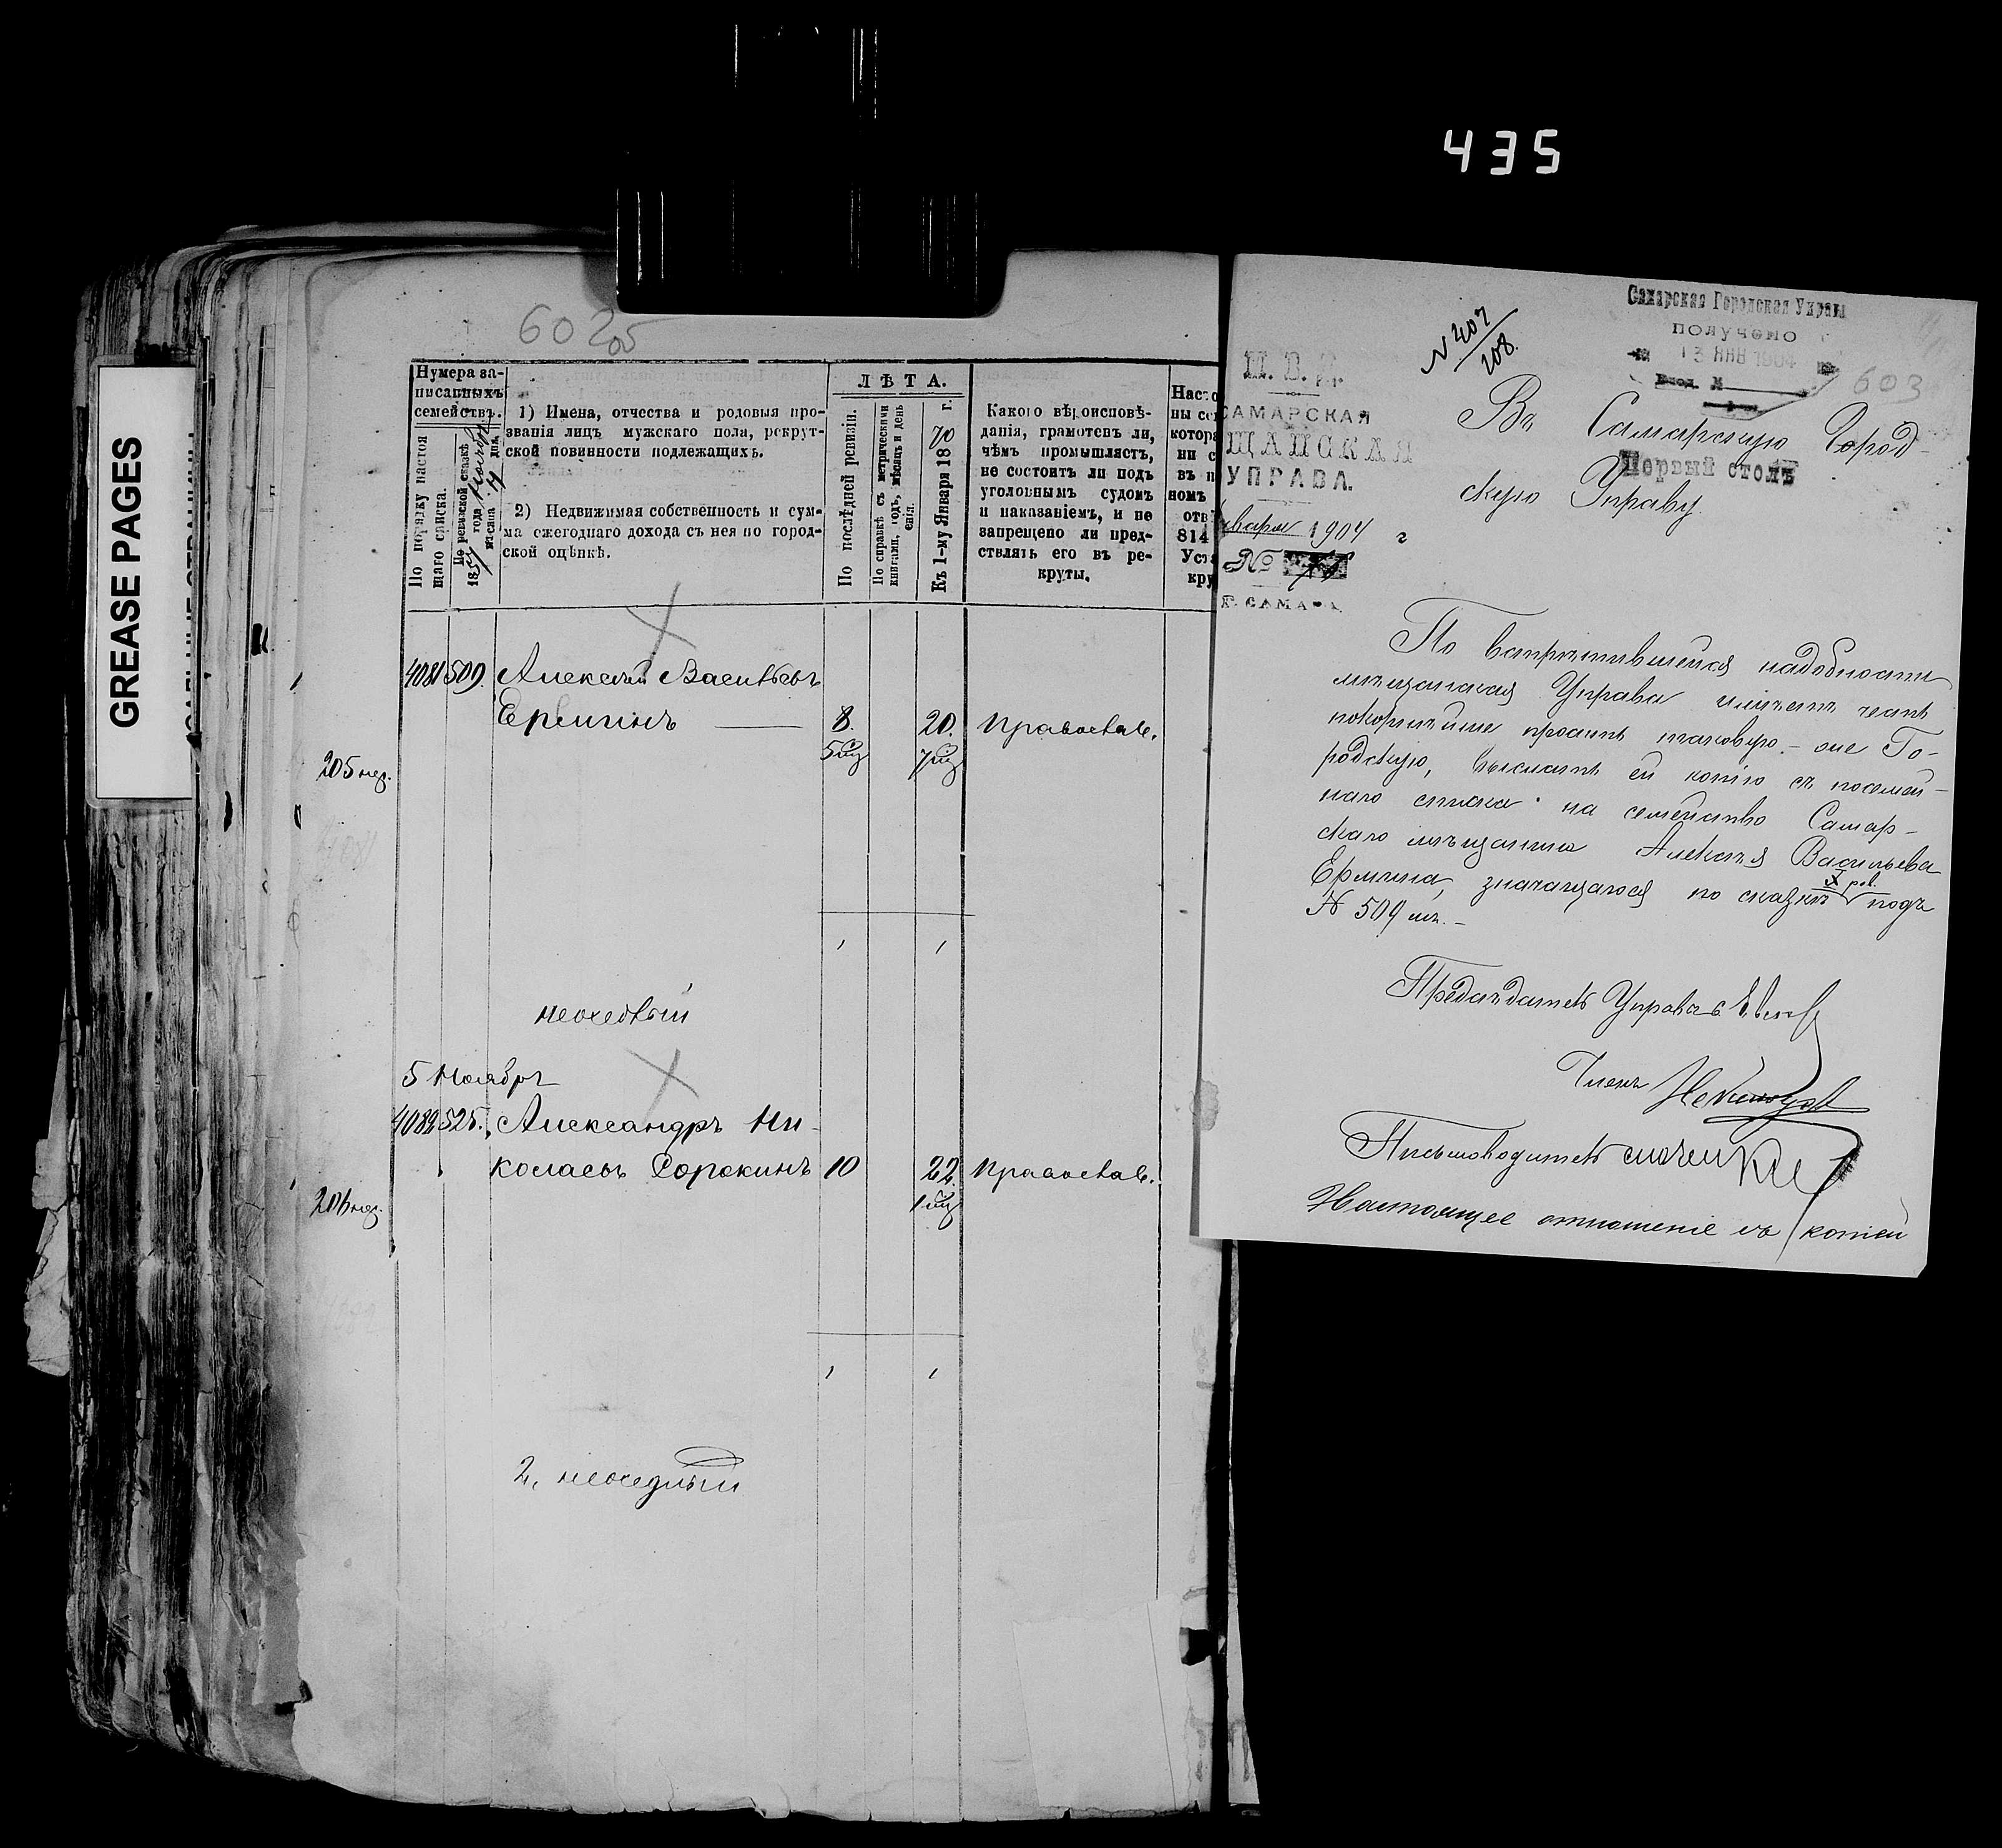 435
GREASE PAGES
6025
Нумера за-
писанныхъ
семействъ.
По порядку настоя
щаго списка.
По ревизской сказкѣ
1857 года Ноября
мѣсяца 4 дня.
1) Имена, отчества и родовыя про-
званія лицъ мужскаго пола, рекрут-
ской повинности подлежащихъ.
2) Недвижимая собственность и сум-
ма ежегоднаго дохода съ нея по город-
ской оцѣнкѣ.
ЛѢТА.
По послѣдней ревизіи.
По справкѣ съ метрическими
книгами, годъ, мѣсяцъ и день
Къ 1-му Января 1870 г.
Какого вѣроисповѣ-
данія, грамотенъ ли,
чѣмъ промышляетъ,
не состоитъ ли подъ
уголовнымъ судомъ
и наказаніемъ, и не
запрещено ли пред-
ставлять его въ ре-
круты.
4081 509. Алексѣй Васильевъ
Ермишнъ — 8. 20. Православ.
205 мѣ.
1 1
неочедный
5 Ноября
4082 525. Александръ Ни-
колаевъ Сорокинъ 10 22. Православ.
206 мѣ.
1 1
2, неочедный
№ 207/208.
Самарская Городская Управа
получено
13 ЯНВ 1904
Вход. №
603
М. В. Д.
САМАРСКАЯ
ЩАНСКАЯ
УПРАВА.
варя 1904 г
№
Г. САМАРА.
Въ Самарскую Город-
Первый столъ
скую Управу.
По встрѣтившейся надобности
мѣщанская Управа имѣетъ честь
покорнѣйше просить таковую-же Го-
родскую, выслать ей копію съ посемей-
наго списка на семейство Самар-
скаго мѣщанина Алексѣя Васильева
Ермина, значащагося по сказкѣ X рев. подъ
№ 509 мъ.-
Предсѣдатель Управы
Членъ
Письмоводитель
Настоящее отношеніе съ копіей